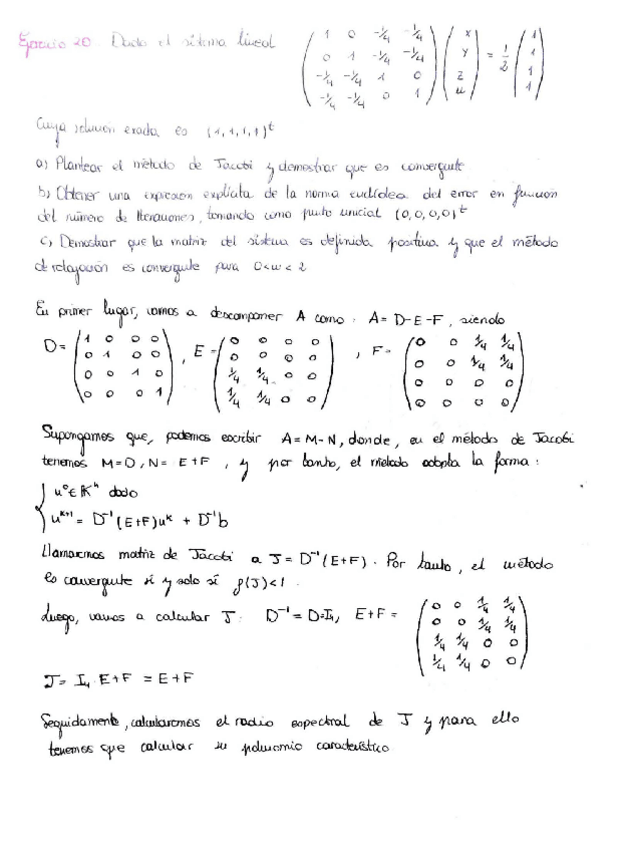 Ejercicio 20. Dado el sistema lineal \begin{pmatrix} 1 & 0 & -1/4 & -1/4 \\ 0 & 1 & -1/4 & -1/4 \\ -1/4 & -1/4 & 1 & 0 \\ -1/4 & -1/4 & 0 & 1 \end{pmatrix} \begin{pmatrix} x \\ y \\ z \\ u \end{pmatrix} = \frac{1}{2} \begin{pmatrix} 1 \\ 1 \\ 1 \\ 1 \end{pmatrix}
Cuya solución exacta es (1,1,1,1)^t
a) Plantear el método de Jacobi y demostrar que es convergente
b) Obtener una expresión explícita de la norma euclídea del error en función
del número de iteraciones, tomando como punto inicial (0,0,0,0)^t
c) Demostrar que la matriz del sistema es definida positiva y que el método
de relajación es convergente para 0<w<2
En primer lugar, vamos a descomponer A como: A = D-E-F, siendo
D = \begin{pmatrix} 1 & 0 & 0 & 0 \\ 0 & 1 & 0 & 0 \\ 0 & 0 & 1 & 0 \\ 0 & 0 & 0 & 1 \end{pmatrix}, E = \begin{pmatrix} 0 & 0 & 0 & 0 \\ 0 & 0 & 0 & 0 \\ 1/4 & 1/4 & 0 & 0 \\ 1/4 & 1/4 & 0 & 0 \end{pmatrix}, F = \begin{pmatrix} 0 & 0 & 1/4 & 1/4 \\ 0 & 0 & 1/4 & 1/4 \\ 0 & 0 & 0 & 0 \\ 0 & 0 & 0 & 0 \end{pmatrix}
Supongamos que, podemos escribir A=M-N, donde, en el método de Jacobi
tenemos M=D, N= E+F, y por tanto, el método adopta la forma:
u^0 ∈ K^n dado
u^{k+1} = D^{-1}(E+F)u^k + D^{-1}b
Llamaremos matriz de Jacobi a J = D^{-1}(E+F). Por tanto, el método
es convergente si y solo si ρ(J)<1.
Luego, vamos a calcular J: D^{-1} = D=I_4, E+F = \begin{pmatrix} 0 & 0 & 1/4 & 1/4 \\ 0 & 0 & 1/4 & 1/4 \\ 1/4 & 1/4 & 0 & 0 \\ 1/4 & 1/4 & 0 & 0 \end{pmatrix}
J = I_4 · E+F = E+F
Seguidamente, calcularemos el radio espectral de J y para ello
tenemos que calcular su polinomio característico.